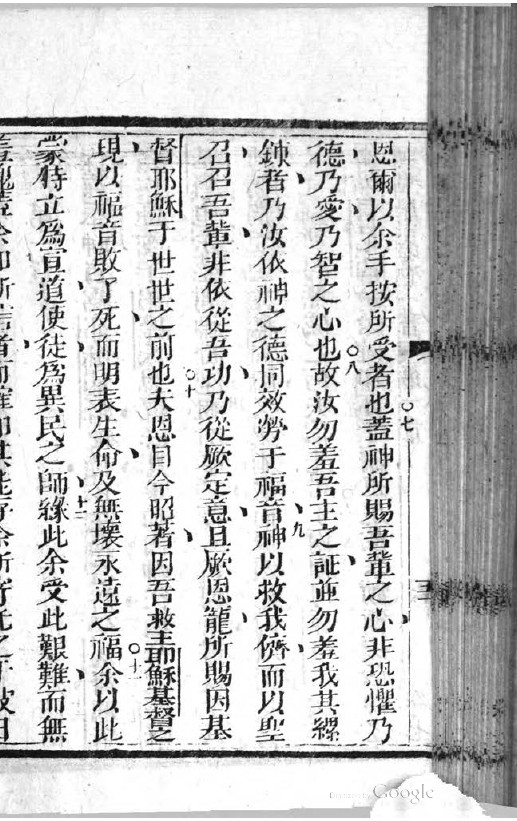 恩爾以余手按所受者也○七蓋神所賜吾輩之心非恐懼乃
德乃愛乃智之心也○八故汝勿羞吾主之証並勿羞我其縲
鍊者乃汝依神之德同效勞于福音○九神以救我儕而以聖
召召吾輩非依從吾功乃從厥定意且厥恩寵所賜因基
督耶穌于世世之前也○十夫恩目今昭著因吾救主耶穌基督之
現以福音敗了死而明表生命及無壞永遠之福○十一余以此
蒙特立為宣道使徒為異民之師○十二緣此余受此艱難而無
羞 余 所信者而 其能 余所寄託之
Google